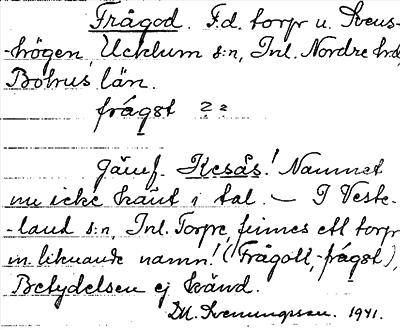 Frågod. F.d. torpr u. Svens-
-högen, Ucklum s:n, Inl. Nordre hrd,
Bohus län.
frågst
Jämf. Kesås! Namnet
nu icke känt i tal. — I Veste-
-land s:n, Inl. Torpe, finnes ett torp
m. liknande namn! (Frågott, -frågst),
Betydelsen ej känd.
M. Svenungsson. 1941.